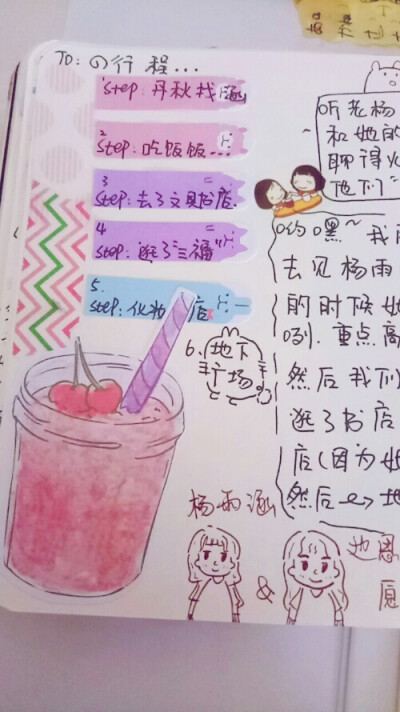 TO: の行程...
1 step: 丹秋找涵
2 step: 吃饭饭...
3 step: 去了文具书店.
4 step: 逛了三福
5. step: 化妆店
6. 地下
广场
听老杨
和她的
聊得火
他们~
哟嘿~ 我
去见杨雨
的时候她
咧. 重点高
然后我们
逛了书店
店(因为她
然后 地
杨雨涵
&